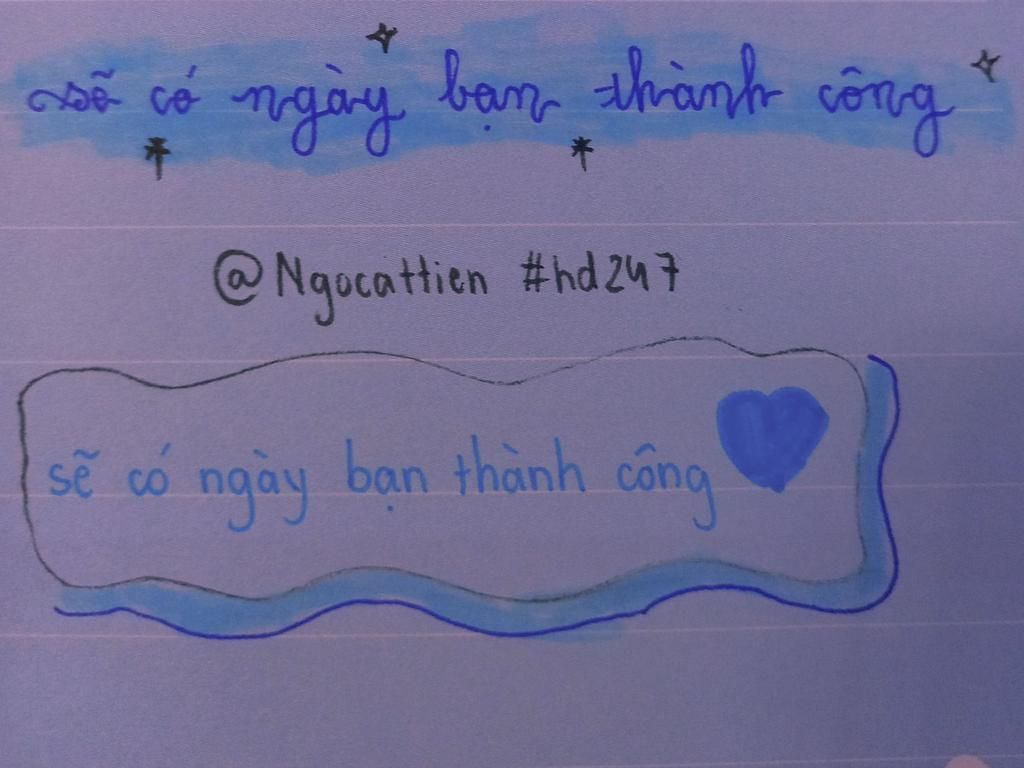 sẽ có ngày bạn thành công
@Ngocattien #hd247
sẽ có ngày bạn thành công